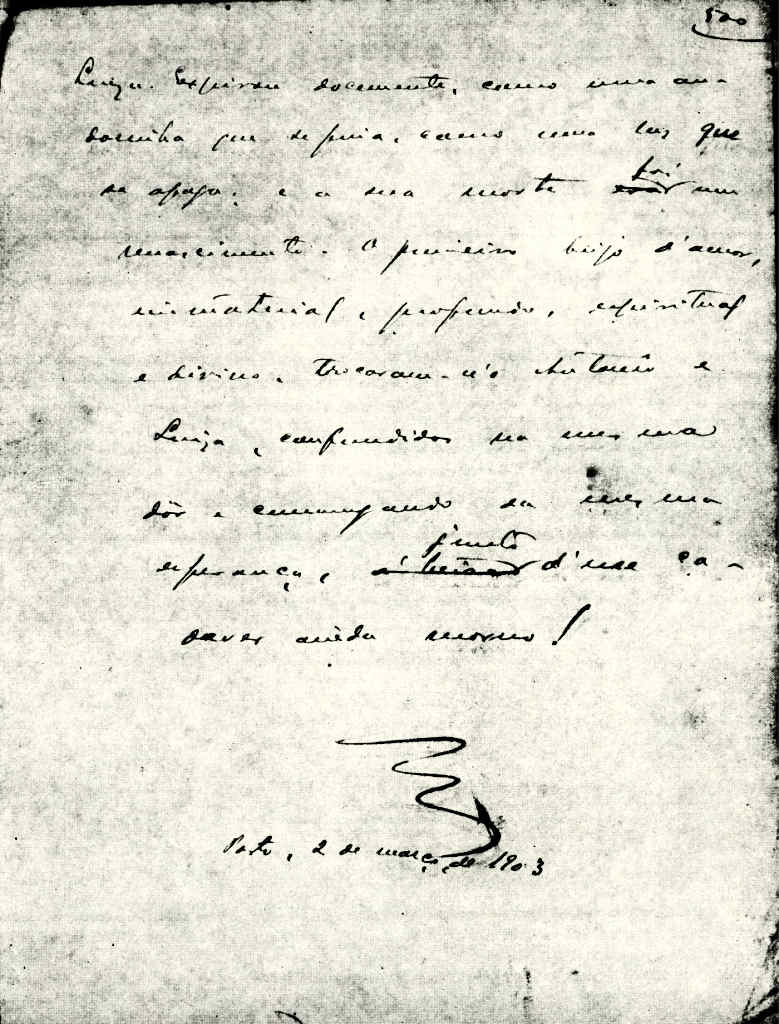 500
Luiza. Expirou docemente, como uma an-
dorinha que se fina, como uma luz que
se apaga; e a sua morte foi um
renascimento. O primeiro beijo d'amor,
immaterial, profundo, espiritual
e divino, trocaram-n'o António e
Luiza, confundidos na mesma
dôr e commungando da mesma
esperança, junto d'um ca-
daver ainda morno!
Porto, 2 de março de 1903